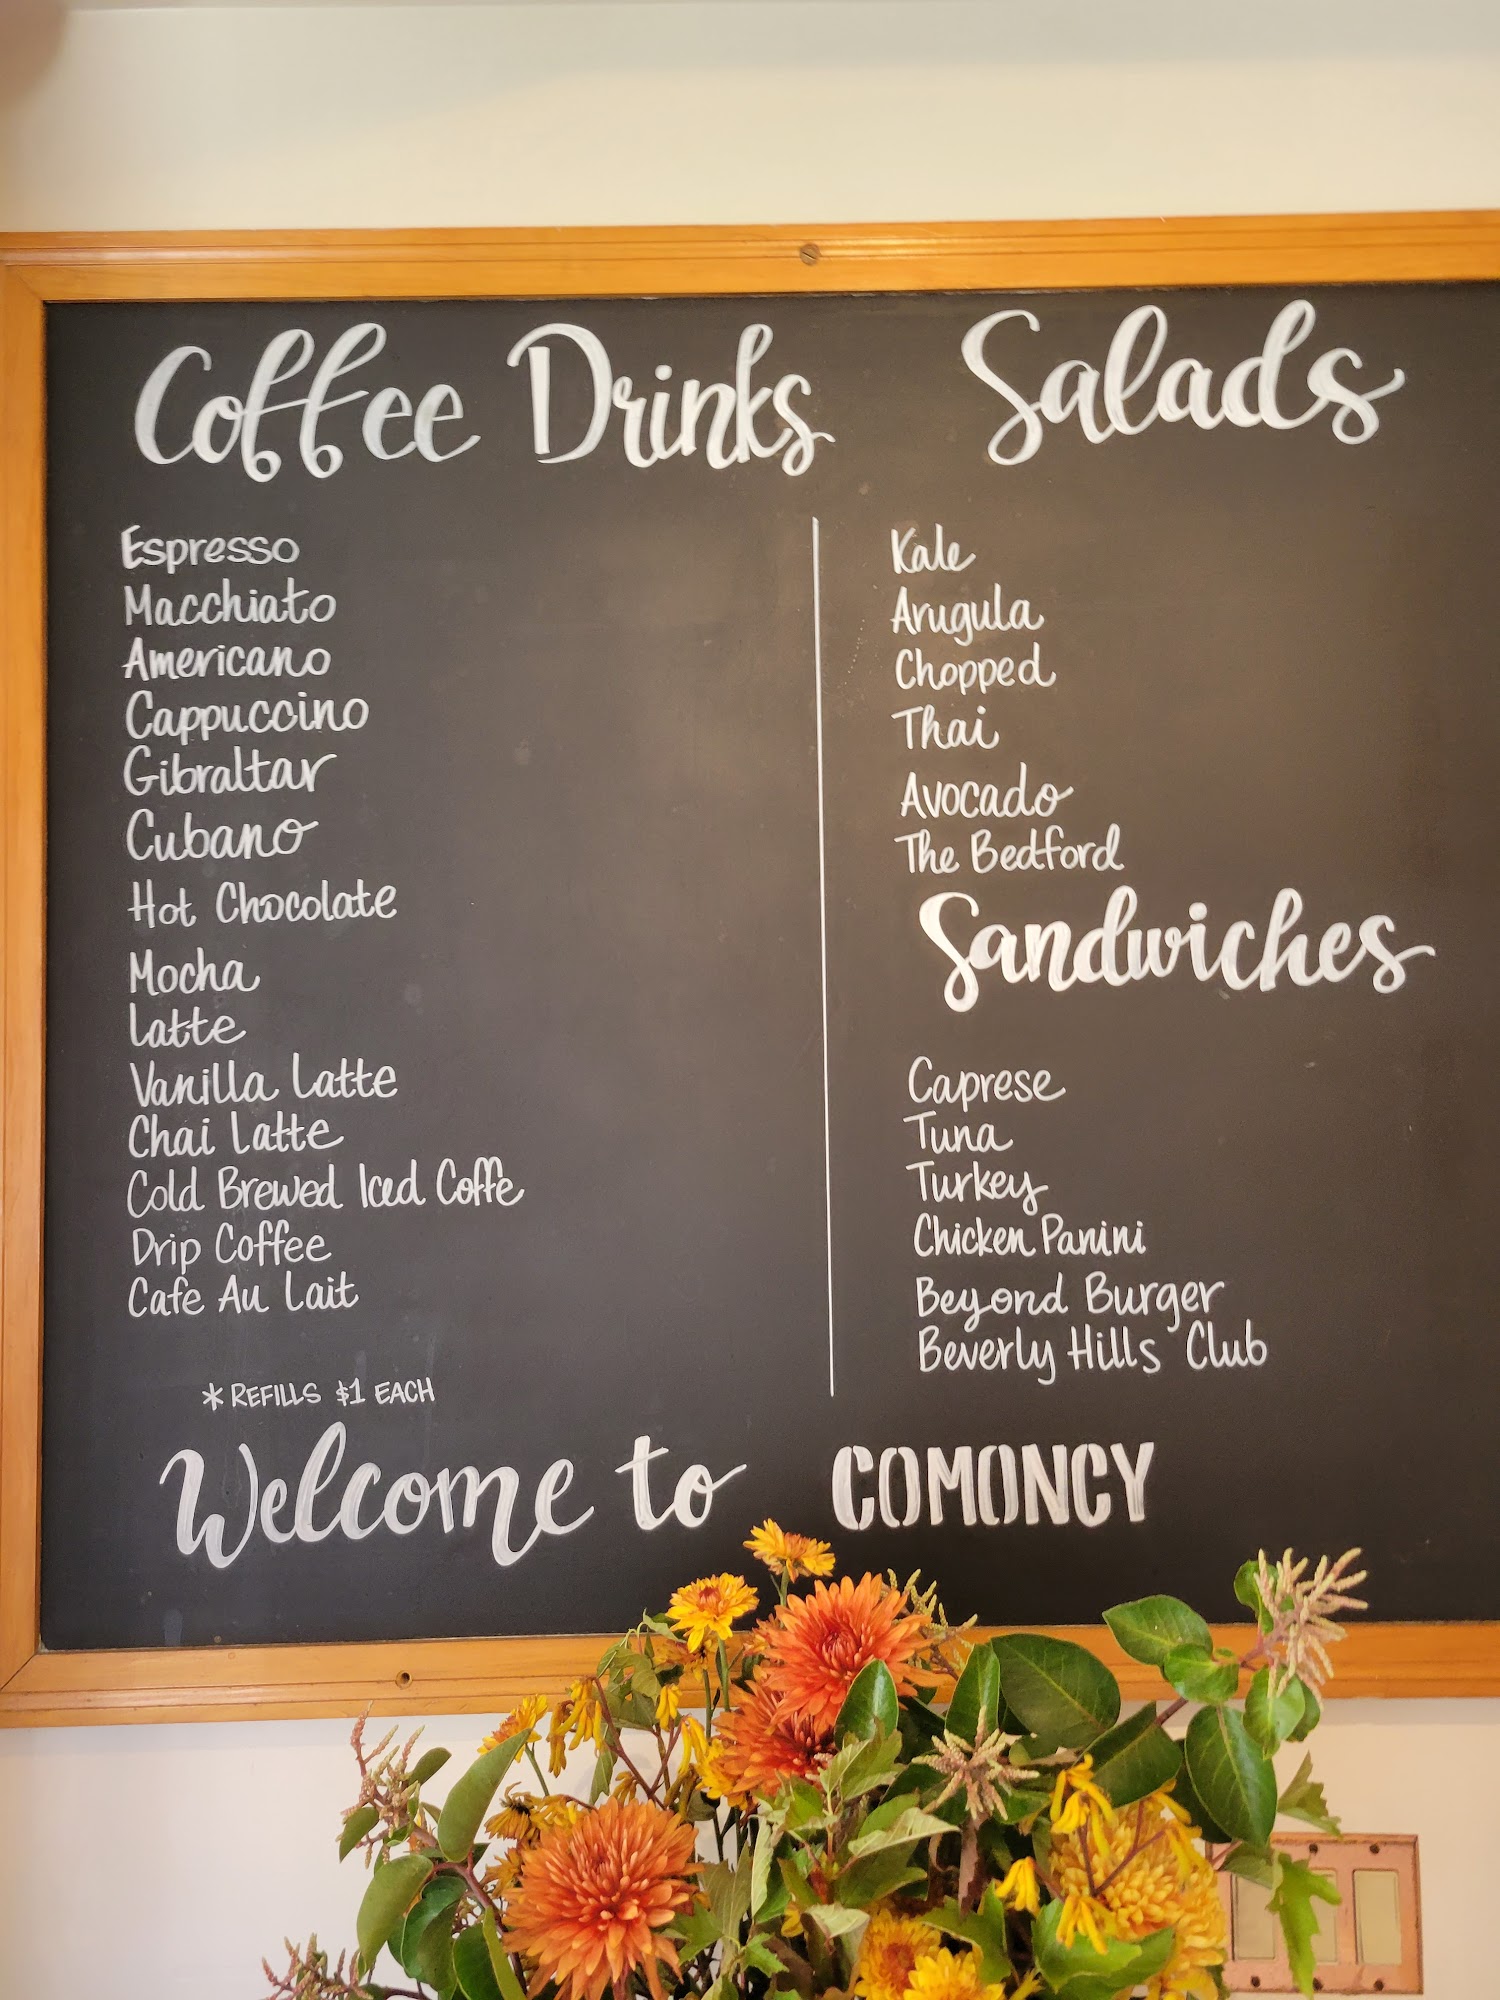 Coffee Drinks
Espresso
Macchiato
Americano
Cappuccino
Gibraltar
Cubano
Hot Chocolate
Mocha
Latte
Vanilla Latte
Chai Latte
Cold Brewed Iced Coffe
Drip Coffee
Cafe Au Lait
*REFILLS $1 EACH
Salads
Kale
Arugula
Chopped
Thai
Avocado
The Bedford
Sandwiches
Caprese
Tuna
Turkey
Chicken Panini
Beyond Burger
Beverly Hills Club
Welcome to COMONCY